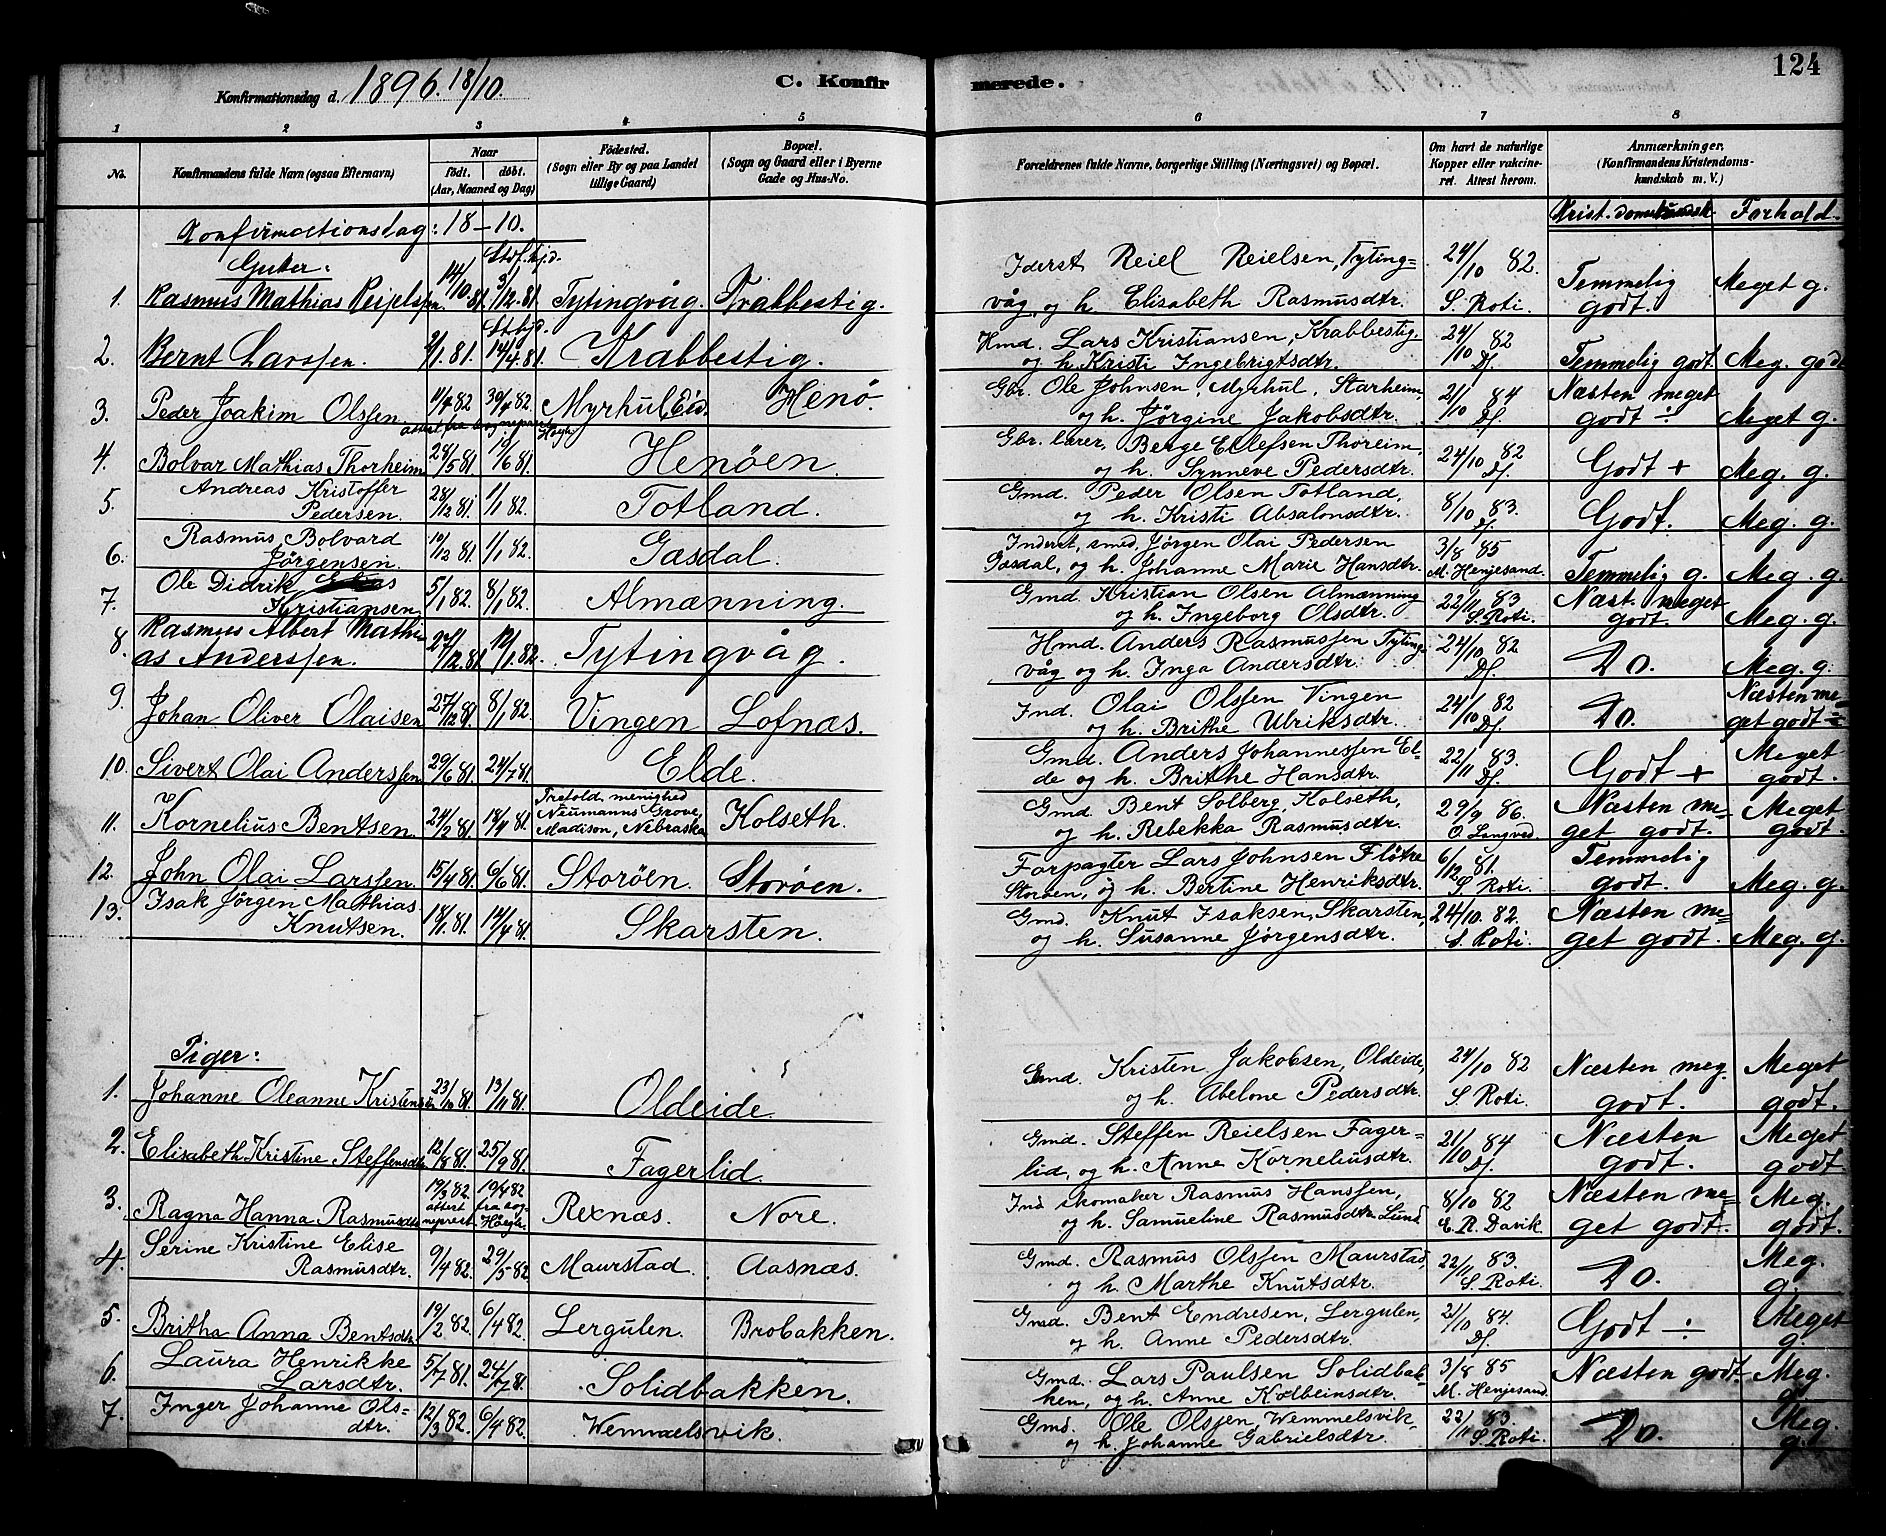 124
Konfirmationsdag d. 1896. 18/10.
C. Konfirmerede.
1 2 3 4 5 6 7 8
No.
Konfirmandens fulde Navn (ogsaa Efternavn)
Naar
født. døbt.
(Aar, Maaned og Dag)
Fødested.
(Sogn eller By og paa Landet
tillige Gaard)
Bopæl.
(Sogn og Gaard eller i Byerne
Gade og Hus-No.
Forældrenes fulde Navne, borgerlige Stilling (Næringsvei) og Bopæl.
Om havt de naturlige
Kopper eller vakcine-
ret. Attest herom.
Anmærkninger.
(Konfirmandens Kristendoms-
kundskab m. V.)
Krist. domskundsk. Forhold.
Konfirmationsdag: 18-10.
Gutter:
1. Rasmus Mathias 14/10 81. Stdf. hjd. 3/12 81. Tytingvåg
Iderst Reiel Reielsen, Tyting=
våg, og h. Elisabeth Rasmusdtr.
24/10 82. S. Roti.
Temmelig godt. Meget g.
2. Bernt Larssen. 2/1. 81. St. hjd. 14/4. 81. Krabbestig.
Hmd. Lars Kristiansen, Krabbestig,
og h. Kristi Ingebrigtsdtr.
24/10 82 Df.
Temmelig godt. Meg. godt
3. Peder Joakim Olssen. 11/4 82 30/4 82. Myrhul, Eid. Henö.
attest fra sognepræst Høegh
Gbr. Ole Johnsen, Myrhul, Starheim,
og h. Jørgine Jakobsdtr.
21/10 84 Df.
Næsten meget godt ÷ Meget g.
4. Bolvar Mathias Thorheim 28/5 81. 19/6 81. Henöen.
Gbr. lærer, Berge Ellefsen Thoreim,
og h. Synneve Pedersdtr.
24/10 82 Df.
Godt + Meg. g.
5. Andreas Kristoffer
Pedersen. 28/12 81. 1/1 82. Totland.
Gmd. Peder Olsen Totland,
og h. Kristi Absalonsdtr.
8/10 83. Df.
Godt. Meg. g.
6. Rasmus Bolvard
Jörgensen. 10/12 81. 1/1 82. Gasdal.
Inderst, smed, Jörgen Olai Pedersen
Gasdal, og h. Johanne Marie Hansdtr.
3/8 85 M. Henjesand.
Temmelig g. Meg. g.
7. Ole Didrik
Kristiansen 5/1 82. 8/1 82. Almænning.
Gmd. Kristian Olsen Almænning
og h. Ingeborg Olsdtr.
22/11 83 S. Roti.
Næst. meget godt. Meg. g.
8. Rasmus Albert Mathi-
as Anderssen. 27/12. 81. 12/1. 82. Tytingvåg.
Hmd. Anders Rasmussen Tyting-
våg og h. Inga Andersdtr.
24/10 82 Df.
Do. Meg. g.
9. Johan Oliver Olaisen 27/12 81. 8/1 82. Vingen Lofnæs.
Ind. Olai Olssen Vingen
og h. Brithe Ulriksdtr.
24/10 82 Df.
Do. Næsten me=
get godt ÷
10. Sivert Olai Anderssen 29/6 81. 24/7 81. Elde.
Gmd. Anders Johannessen El-
de og h. Brithe Hansdtr.
22/11 83. Df.
Godt + Meget godt.
11. Kornelius Bentsen. 24/2 81. 18/4 81. Trefold. menighed
Neumanns Grove,
Madison, Nebraska Kolseth.
Gmd. Bent Solberg, Kolseth,
og h. Rebekka Rasmusdtr.
29/9 86. O. Langved.
Næsten me=
get godt. Meget godt.
12. John Olai Larssen. 15/4 81. 6/6 81. Storöen. Storöen.
Forpagter Lars Johnsen Flötre
Storöen, og h. Bertine Henriksdtr.
6/12 81. S. Roti.
Temmelig godt. Meg. g.
13. Isak Jörgen Mathias
Knutsen. 18/1. 81. 14/4 81. Skarsten.
Gmd. Knut Isaksen, Skarsten,
og h. Susanne Jörgensdtr.
24/10. 82. S. Roti.
Næsten me=
get godt. Meg. g.
Piger:
1. Johanne Oleanne 23/10 81. 13/11 81. Oldeide.
Gmd. Kristen Jakobsen, Oldeide,
og h. Abelone Pedersdtr.
24/10 82 S. Roti.
Næsten meg. godt. Meget godt.
2. Elisabeth Kristine Steffensdtr. 12/8 81. 25/9 81. Fagerlid.
Gmd. Steffen Reielsen Fager=
lid, og h. Anne Korneliusdtr.
21/10 84 Df.
Næsten godt. Meget godt
3. Ragna Hanna Rasmusdtr. 19/3 82. 10/4 82 Rexnæs. Nore.
attest fra sog
nepræst Høegh.
Ind skomaker Rasmus Hanssen,
og h. Samueline Rasmusdtr. Lund
8/10 82 E. R. Davik
Næsten me=
get godt. Meg. godt.
4. Serine Kristine Elise
Rasmusdtr. 9/4 82. 29/5 82 Maurstad. Aasnæs.
Gmd. Rasmus Olssen Maurstad,
og h. Marthe Knutsdtr.
22/11 83. S. Roti.
Do. Meg. g.
5. Britha Anna Bentsdtr 19/2 82. 6/4 82. Lergulen. Brobakken.
Gmd. Bent Endresen, Lergulen,
og h. Anne Pedersdtr.
21/10 84. Df.
Godt ÷ Meget g.
6. Laura Henrikke
Larsdtr. 5/7 81. 24/7 81. Solidbakken.
Gmd. Lars Paulsen Solidbak-
ken, og h. Anne Kolbeinsdtr.
3/8 85 M. Henjesand.
Næsten godt. Meg. g.
7. Inger Johanne Ols=
dtr. 12/3 82. 6/4 82. Wemmelsvik.
Gmd. Ole Olssen, Wemmelsvik
og h. Johanne Gabrielsdtr.
22/11 83. S. Roti.
Do. Meg. g.